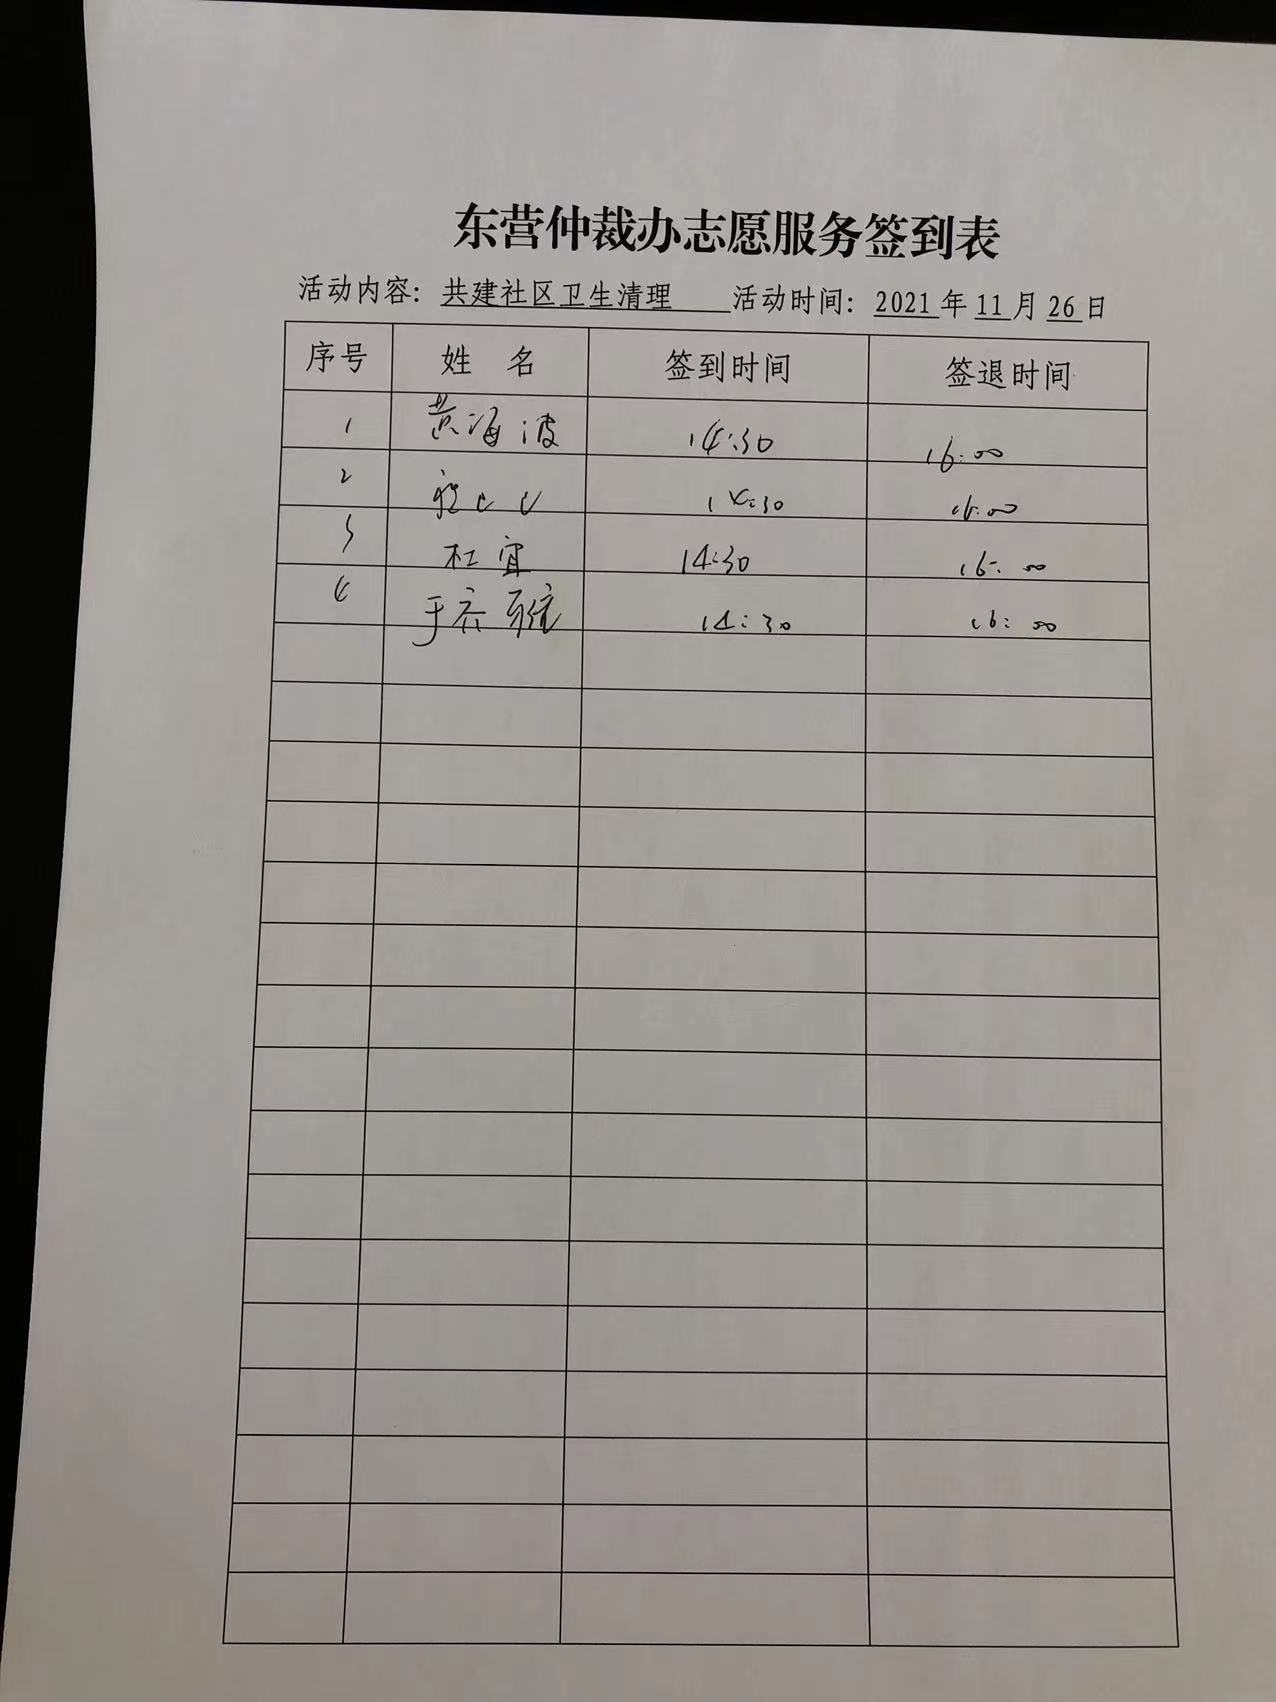 东营仲裁办志愿服务签到表
活动内容: 共建社区卫生清理 活动时间: 2021 年 11 月 26 日
序号 姓 名 签到时间 签退时间
1 黄海波 14:30 16:00
2 14:30 16:00
3 杜宜 14:30 16:00
4 于 14:30 16:00